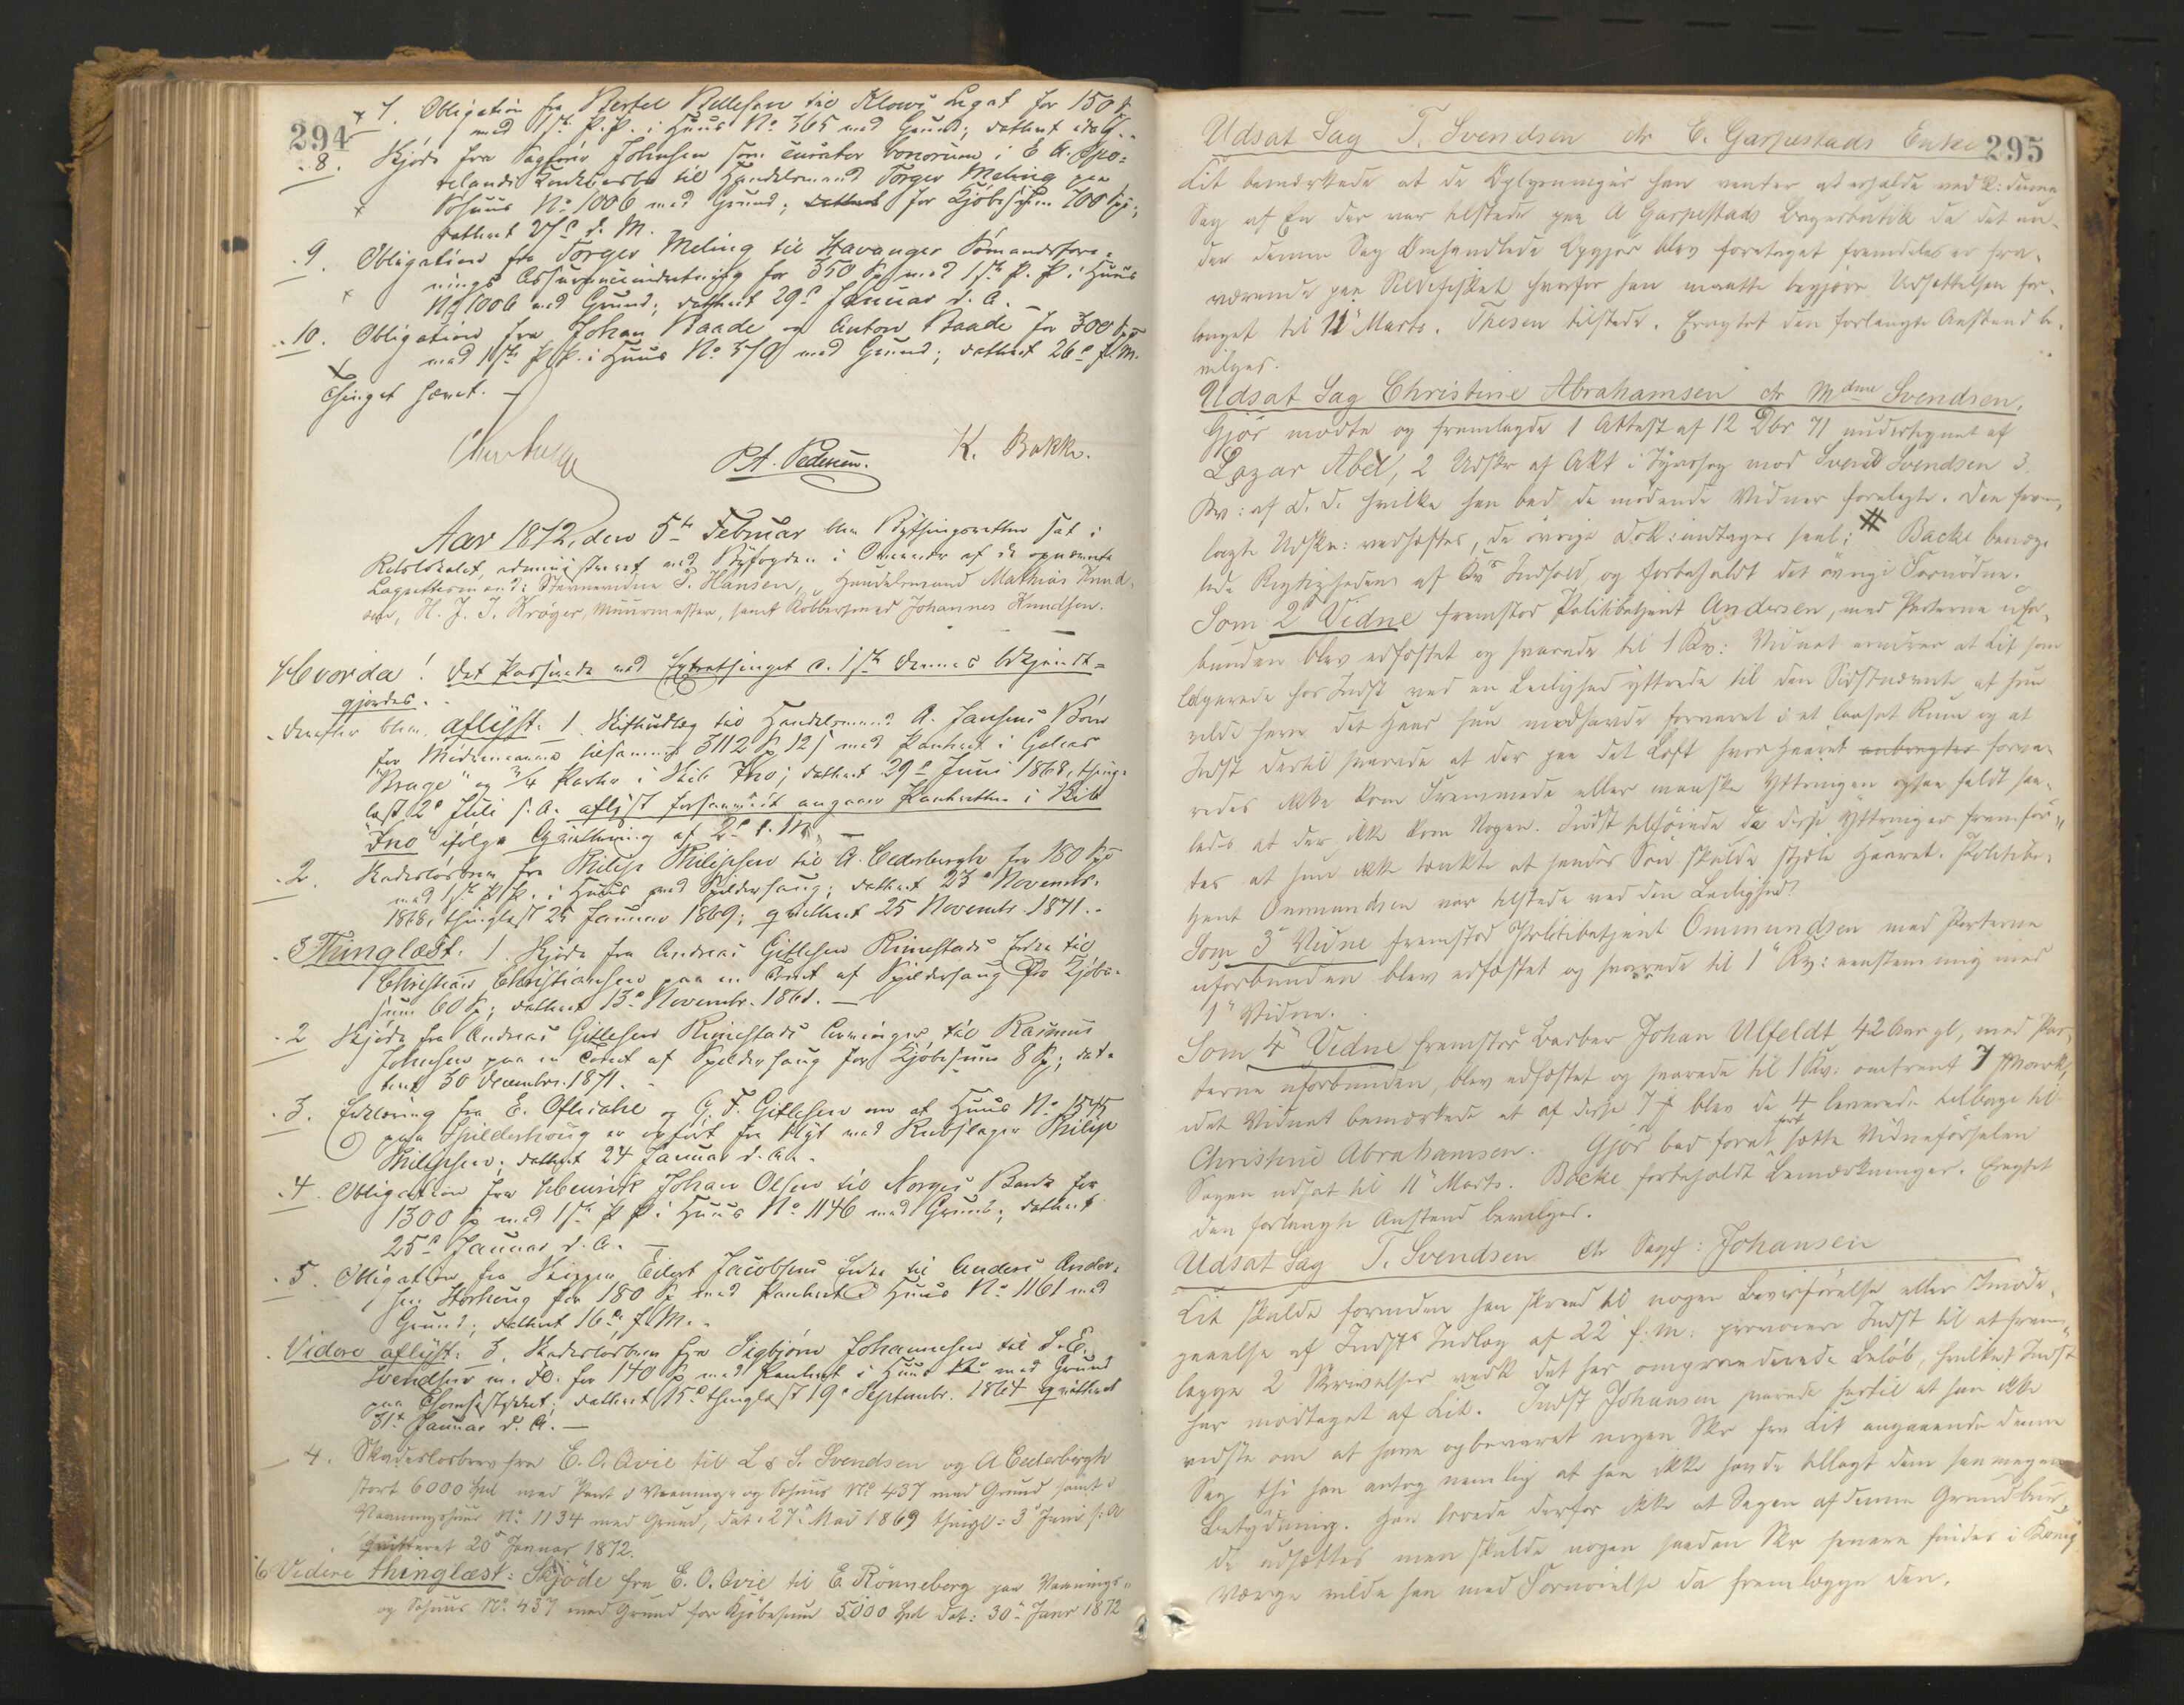 294
7. Obligation fra Bertel Pellesen til Klows Legat for 150 Sp
med 1ste P. P. i Huus No 365 med Grund; dateret idag.
8. Skjøde fra Sagfører Johnsen som curator bonorum i E. A. Opo-
til Handelsmand Torger Meling paa
Søhuus No 1006 med Grund; for Kjøbesum 700 Sp;
dateret d. M.
9. Obligation fra Torger Meling til Stavanger Sømandsfore-
nings Assuranceindretning for 350 Sp med 1ste P. P. i Huus
No 1006 med Grund; dateret 29de Januar d. A.
10. Obligation fra Johan Baade og Anton Baade for 300 Sp
med 1ste P. P. i Huus No med Grund; dateret 26de f. M.
Thinget hævet.
P. A. Pedersen. K. Bakke.
Aar 1872, den 5te Februar blev Bythingsretten sat i
Retslokalet, administreret ved Byfogden i Overvær af de opnævnte
Laugrettesmænd: P. Hansen, Handelsmand Mathias Knud-
sen, H. J. J. Krøger, Muurmester, samt Kobbersmed Johannes Knudsen.
Hvorda! Det Passerede ved Extrathinget d. 1ste dennes bekjendt-
gjordes.
Derefter blev aflyst: 1. Skifteudlæg til Handelsmand A. Jansens Børn
for Mødrenearv tilsammen 3112 Sp 12 s med Panteret i Galeas
"Brage" og 3/4 Parter i Skib Ino; dateret 29de Juni 1868, thing-
læst 2de Juli s. A. aflyst forsaavidt angaaer Panteretten i Skib
"Ino" ifølge Qvittering af 2de d. M.
2. Skadesløsbrev fra Philip Philipsen til A. Cederbergh for 180 Sp
med 1ste P. P. i Huus paa Spilderhaug; dateret 23de Novembr.
1868, thinglæst 25 Januar 1869; qvitteret 25 Novembr. 1871.
Thinglæst: 1. Skjøde fra Andreas Gitlesen Rimestads Enke til
Christian Christiansen paa en Tomt af Spilderhaug for Kjøbe-
sum 60 Sp; dateret 13de Novembr. 1861.
2 Skjøde fra Andreas Gitlesen Rimestads Arvinger til Rasmus
Johnsen paa en Tomt af Spilderhaug for Kjøbesum 8 Sp; date-
teret 30 Decembr. 1871.
3. Erklæring fra E. Oftedahl og G. F. Gitlesen om at Huus No
paa Spilderhoug er opført fra Nyt ved Rebslager Philip
Philipsen; dateret 24 Januar d. A.
4. Obligation fra Henrik Johan Olsen til Norges Bank for
1300 Sp med 1ste P. P. i Huus No 1146 med Grund; dateret
25de Januar d. A.
5. Obligation fra Skipper Eilert Jacobsens Enke til Anders Ander-
sen Storhaug for 180 Sp med Panteret i Huus No 1161 med
Grund; dateret 16de f. M.
Videre aflyst: 3. Skadesløsbrev fra Sigbjørn Johannesen til S. E.
Svendsen m. fl. for 140 Sp med Panteret i Huus No med Grund
paa; dateret 15de thinglæst 19de Septembr. 1864 qvitteret
31te Januar d. A.
4. Skadesløsbrev fra E. O. Qvie til L & S. Svendsen og A Cederbergh
stort 6000 Spd med Pant i Vaanings og Søhuus No 437 med Grund samt i
Vaaningshuus No 1134 med Grund, dat: 27de Mai 1869 thingl: 3de Juni s: A
Qvitteret 20de Januar 1872.
6 Videre thinglæst: Skjøde fra E. O. Qvie til E. Rønneberg paa Vaanings-
og Søhuus No 437 med Grund for Kjøbesum 5000 Spd dat: 30de Janr 1872
295
Udsat Sag T. Svendsen ctr E. Garpestads Enke
Cit bemærkede at de Oplysninger han venter at erholde vedk: denne
Sag af En der var tilstede paa A Garpestads Bagerbutik da det un-
der denne Sag Omhandlede Opgjør blev foretaget fremdeles er fra-
værende paa Sildefisket hvorfor han maatte begjære Udsættelsen for-
længet til 11te Marts. Thesen tilstede. Eragtet den forlangte Anstand be-
vilges.
Udsat Sag Christine Abrahamsen ctr Mdme Svendsen.
Gjør mødte og fremlagde 1 Attest af 12 Dbr 71 undertegnet af
Lazar Abel, 2 Udskr af Akt i Tyvssag mod Svend Svendsen 3.
Kv: af d. D. hvilke han bad de mødende Vidner forelagte. Den frem-
lagte Udskr: vedhæftes, de øvrige Dok: indtages saal: # Backe benæg-
tede Rigtigheden af Qvs Indhold, og forbeholdt det øvrige Fornødne.
Som 2de Vidne fremstod Politibetjent Andersen, med Parterne ufor-
bunden blev edfæstet og svarede til 1 Kv: Vidnet erindrer at Cit som
logerede hos Indst ved en Leilighed yttrede til den Sidstnævnte at hun
vilde have det Haar hun medhavde forvaret i et laaset Rum og at
Indst dertil svarede at der paa det Loft hvor Haaret anbragtes forva-
redes ikke kom Fremmede eller maaske Yttringen ogsaa faldt saa-
ledes at der ikke kom Nogen. Indst tilføiede da disse Yttringer fremfør-
tes at hun ikke tænkte at hendes Søn skulde stjæle Haaret. Politibe-
tjent Ommundsen var tilstede ved den Leilighed.
Som 3de Vidne fremstod Politibetjent Ommundsen med Parterne
uforbunden blev edfæstet og svarede til 1te Kv: eenstemmig med
1te Vidne.
Som 4de Vidne fremstod Barber Johan Ulfeldt 42 Aar gl, med Par-
terne uforbunden, blev edfæstet og svarede til 1 Kv: omtrent 7 Mark,
idet Vidnet bemærkede at af disse 7 blev de 4 leverede tilbage til
Christine Abrahamsen. Gjør bad forat fortsætte Vidneførselen
Sagen udsat til 11te Marts. Backe forbeholdt Bemærkninger. Eragtet
den forlangte Anstand bevilges.
Udsat Sag T. Svendsen ctr Sagf: Johansen
Cit skulde forinden han skred til nogen Bevisførelse eller Imøde-
gaaelse af Indsts Indlæg af 22de f. M: provocere Indst til at frem-
lægge 2 Skrivelser vedk det her omprocederede Beløb, hvilket Indst
har modtaget af Cit. Indst Johansen svarede hertil at han ikke
vidste om at have opbevaret nogen Skr fra Cit angaaende denne
Sag thi han antog nemlig at han ikke havde tillagt dem saamegen
Betydning. Han troede derfor ikke at Sagen af denne Grund bur-
de udsættes men skulde nogen saadan Skr senere findes i hans
Værge vilde han med Fornøielse da fremlægge den.